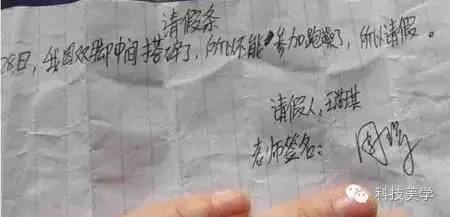 请假条
28日，我因双脚中间搭碎了，所以不能参加跑操了，所以请假。
请假人：王
老师签名：
科技美学